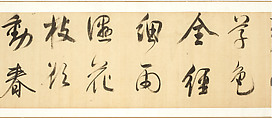 草色
全經
細雨
濕花
枝欲
動春